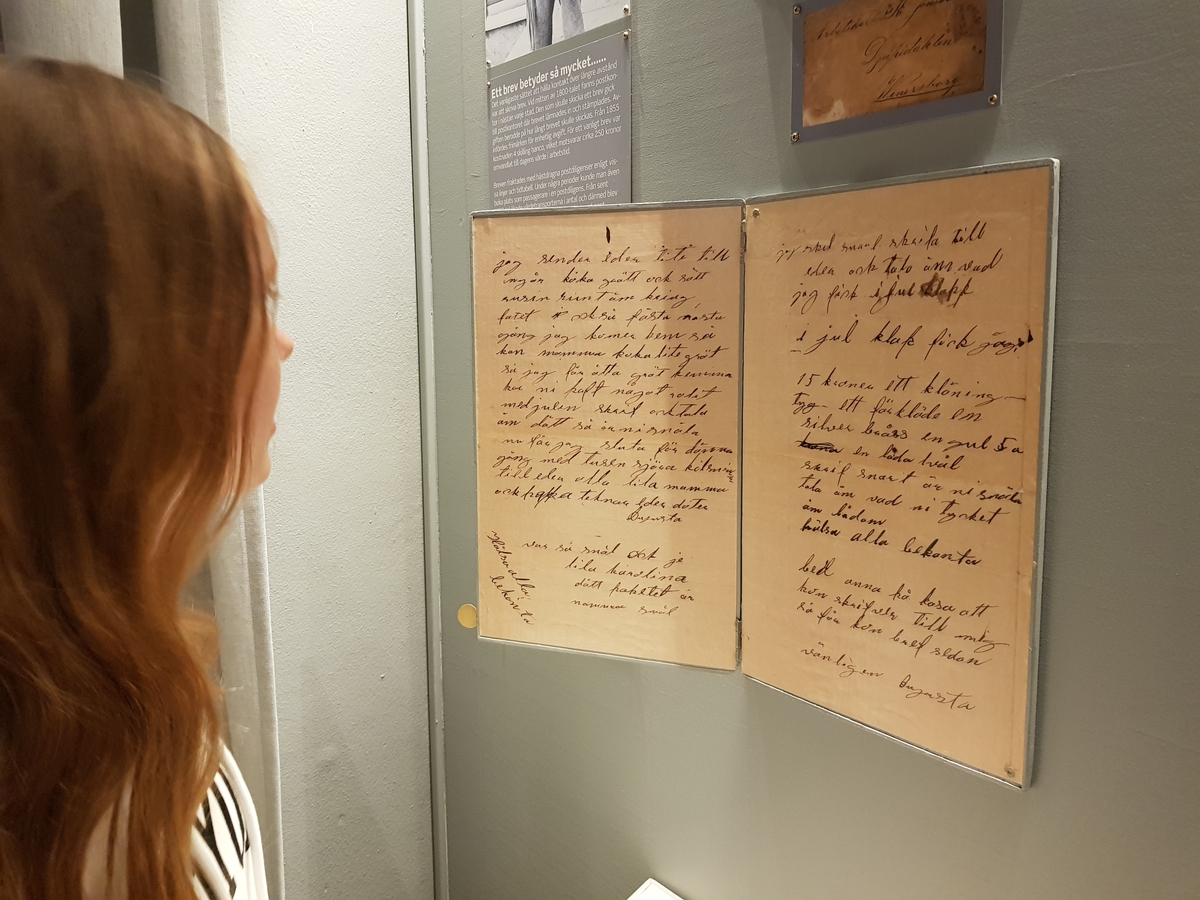 Ett brev betyder så mycket......
Det vanligaste sättet att hålla kontakt över längre avstånd
var att skriva brev. Vid mitten av 1800-talet fanns postkon-
tor i nästan varje stad. Den som skulle skicka ett brev gick
till postkontoret där brevet lämnades in och stämplades. Av-
giften berodde på hur långt brevet skulle skickas. Från 1855
infördes frimärken för enhetlig avgift. För ett vanligt brev var
kostnaden 4 skilling banco, vilket motsvarar cirka 250 kronor
omvandlat till dagens värde i arbetstid.
Breven fraktades med hästdragna postdiligenser enligt vis-
sa linjer och tidtabell. Under några perioder kunde man även
boka plats som passagerare i en postdiligens. Från sent
antal och därmed blev
Wenersborg
jag sender eder lite till
koka gröt och sött
rusin runt äm kring
fatet så första nästa
gång jag komer hem så
kan mamma koka lite gröt
så jag får älta gröt hemma
har ni haft något rolit
med julen skrif och tala
äm dått så är ni snäla
nu får jag sluta för dänna
gång med tusen sjära hälsnin
till eder alla lila mamma
och pappa teknar Eder doter
Augusta
var så snäl och je
lila karolina
dätt paketet är
mamma snäl
Hälsa alla
bekanta
jag skul snart skrifa till
eder och tala äm vad
jag fick i jul klapp
i jul klap fick jag
15 kroner ett kläning
tyg ett förkläde en
silver bråss en gul
en låda tvål
skrif snart är ni snäla
tala äm vad ni tycket
äm lådam
hälsa alla bekanta
bed anna på kasa att
hon skrifver till mig
så får hon bref sedan
vänligen Augusta